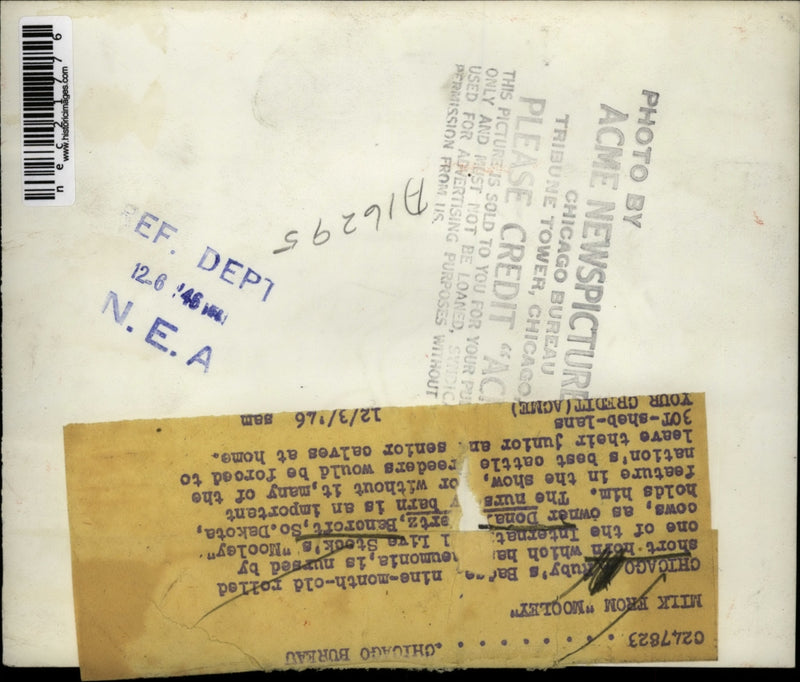 nec21776
www.historicimages.com
PHOTO BY
ACME NEWSPICTURE
CHICAGO BUREAU
TRIBUNE TOWER, CHICAGO
PLEASE CREDIT "AC
THIS PICTURE IS SOLD TO YOU FOR YOUR PU
ONLY AND MUST NOT BE LOANED, SYNDIC
USED FOR ADVERTISING PURPOSES WITHOUT
PERMISSION FROM US.
A16295
EF. DEPT
12 6 '46
N. E. A
C247823 . . . . . . . . . .CHICAGO BUREAU
MILK FROM "MOOLEY"
CHICAGO Ruby's nine-month-old rolled
short horn which ha eumonia, is nursed by
one of the Internati l Live Stock's "Mooley"
cows, as owner Dona ertz, Bencroft, So. Dakota,
holds him. The nurs barn is an important
feature in the show, for without it, many, of the
nation's best cattle reeders would be forced to
leave their junior an senior calves at home.
30T-sheb-lans 12/3/'46 sam
YOUR CREDIT(ACME)